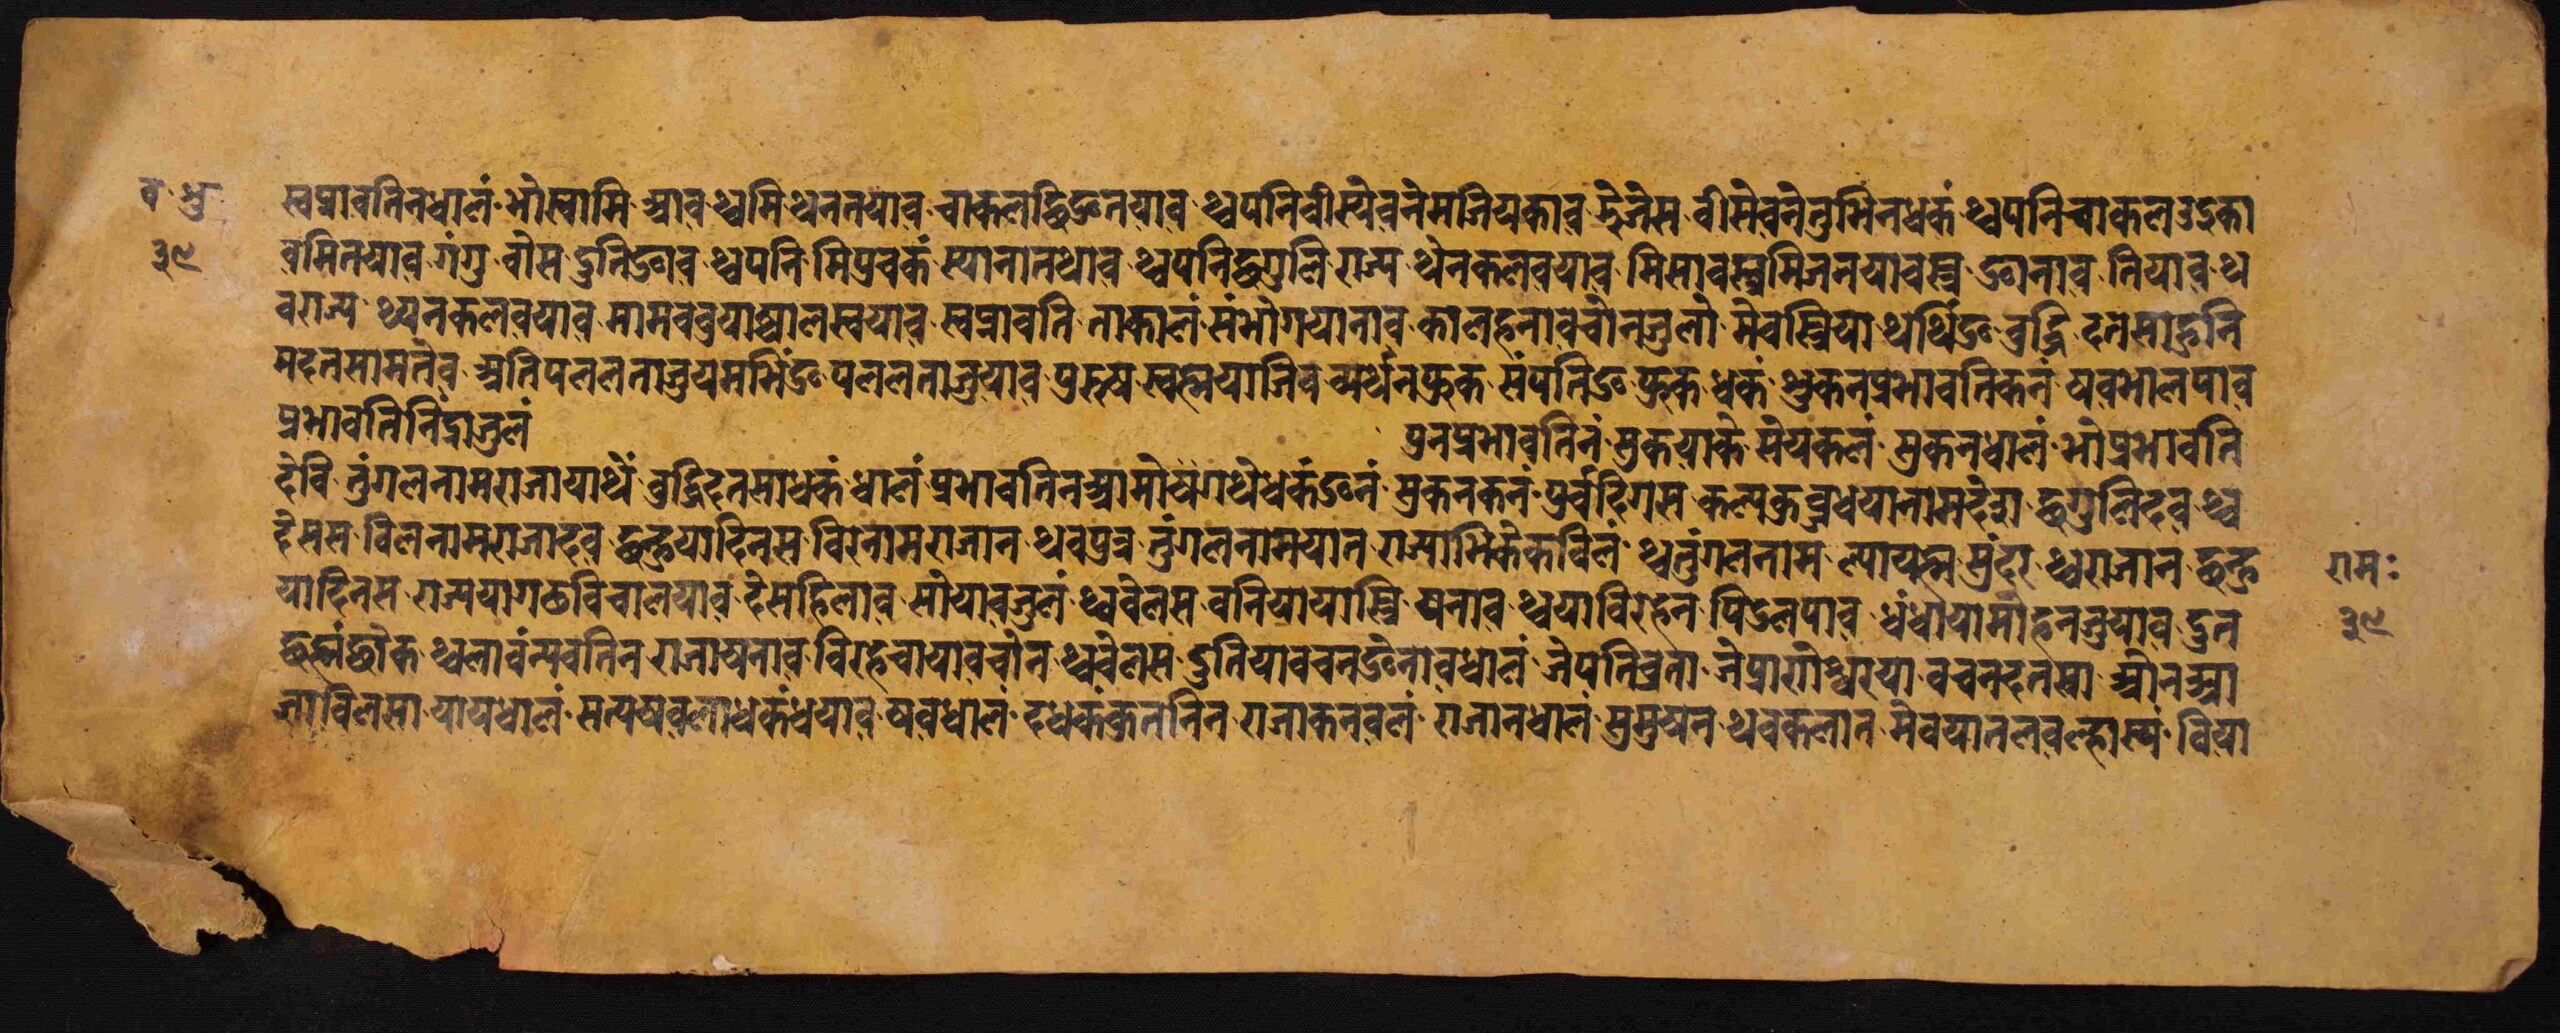 व शु
३९
स्वप्नावतिनधालं भोस्वामि आव थ्वमिथननतयाव चाकलछिङनतयाव थ्वपनिवीस्येवनेमजियकाव देजेस वीसेवनेनुमिनधकं थ्वपनिचाकलउइका
वमितयाव गंगु वीस दुतिङाव थ्वपनि मिपुचकं स्यानानथाव थ्वपनिछगुलि राज्य थेनकलवयाव मिसावस्त्रमिजनयावस्त्र ङानाव तियाव थ
वराज्य थ्यनकलवयाव मामववुयाख्यालस्वयाव स्वप्नावति नाकालं संभोगयानाव कालहनावचोनजुलो मेवस्त्रिया थथिंङ बुद्धि दतसाहुनि
मदतसामतेव अतिपललताजुयमभिंङ पललताजुयाव पुरुष स्वह्मयाजिव व्यर्थनफुक संपतिङ फुक धकं शुकनप्रभावतिकनं षवभालपाव
प्रभावतिनिद्राजुलं पुनप्रभावतिनं सुकयाके सेयकलं सुकनधालं भोप्रभावति
देवि तुंगलनामराजायार्थें बुद्धिदतसाधकं धालं प्रभावतिनआमोषगथेधकंङनं सुकनकनं पुर्वदिगस कल्पक्रवृधयानामदेश छगुलिदव थ्व
देसस विलनामराजादव छन्हुयादिनस विरनामराजान थवपुत्र तुंगलनामयात राज्याभिकेकविलं थ्वतुंगलनाम ल्यायह्म सुंदर थ्वराजान छन्हु
यादिनस राज्ययागठविचालयाव देसहिलाव सोयावजुलं थ्ववेलस वनियायास्त्रि षनाव थ्वयाविरहेन पिडलपाव धंधायामोहनजुयाव दुत
छह्मंछोक थ्वलावंन्यवतिन राजाषनाव विरहेचायावचोन थ्ववेलस दुतियावचनङेनावधालं जेपतिव्रता जेप्रागोश्वरया वचनदतसा ओनआ
ज्ञाविलसा यायधालं सत्यषवलाधकंधयाव षवधालं दधकंक्रतनिन राजाकनवलं राजानधालं सुमुषन थवकलात मेवयातलवल्हास्यं विया
रामः
३९